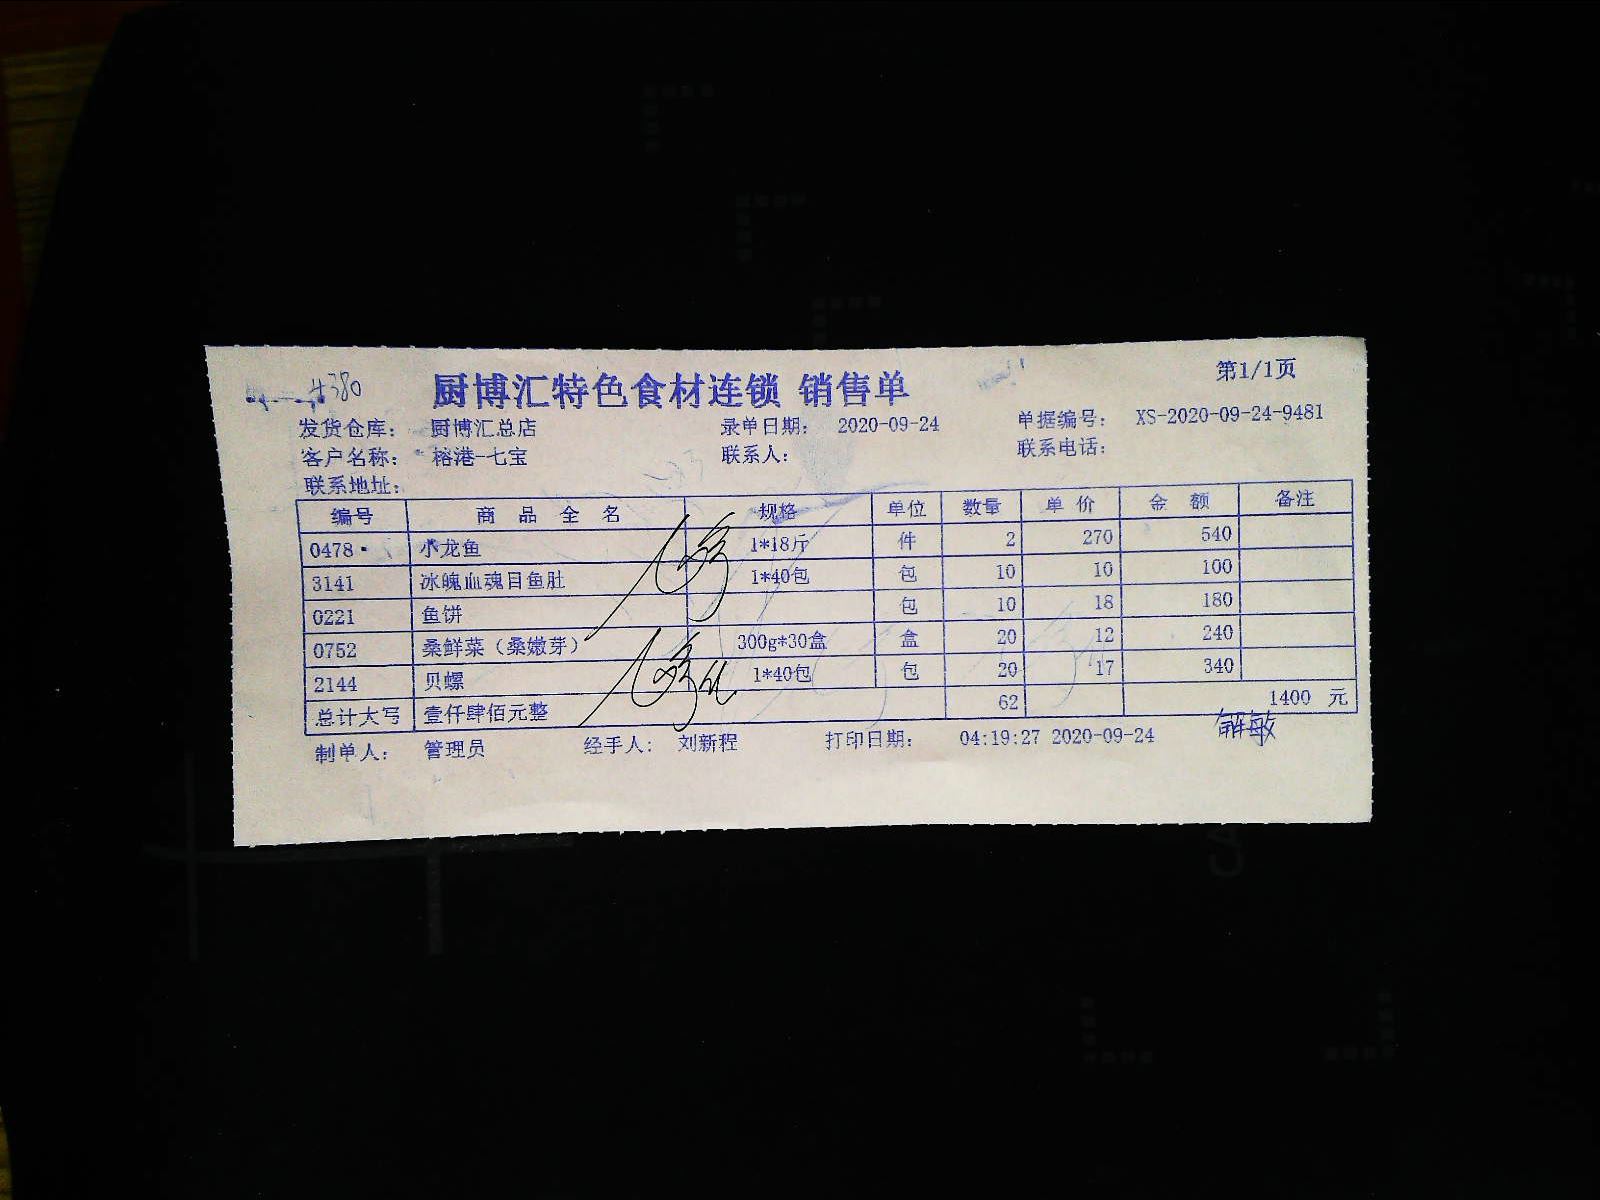 第1/1页
4380
厨博汇特色食材连锁 销售单
发货仓库： 厨博汇总店 录单日期： 2020-09-24 单据编号： XS-2020-09-24-9481
客户名称： 榕港-七宝 联系人： 联系电话：
联系地址：
编号 商 品 全 名 规格 单位 数量 单 价 金 额 备注
0478 小龙鱼 1*18斤 件 2 270 540
3141 冰魄血魂目鱼肚 1*40包 包 10 10 100
0221 鱼饼 包 10 18 180
0752 桑鲜菜（桑嫩芽） 300g*30盒 盒 20 12 240
2144 贝螺 1*40包 包 20 17 340
总计大写 壹仟肆佰元整 62 1400 元
制单人： 管理员 经手人： 刘新程 打印日期： 04:19:27 2020-09-24 解敏